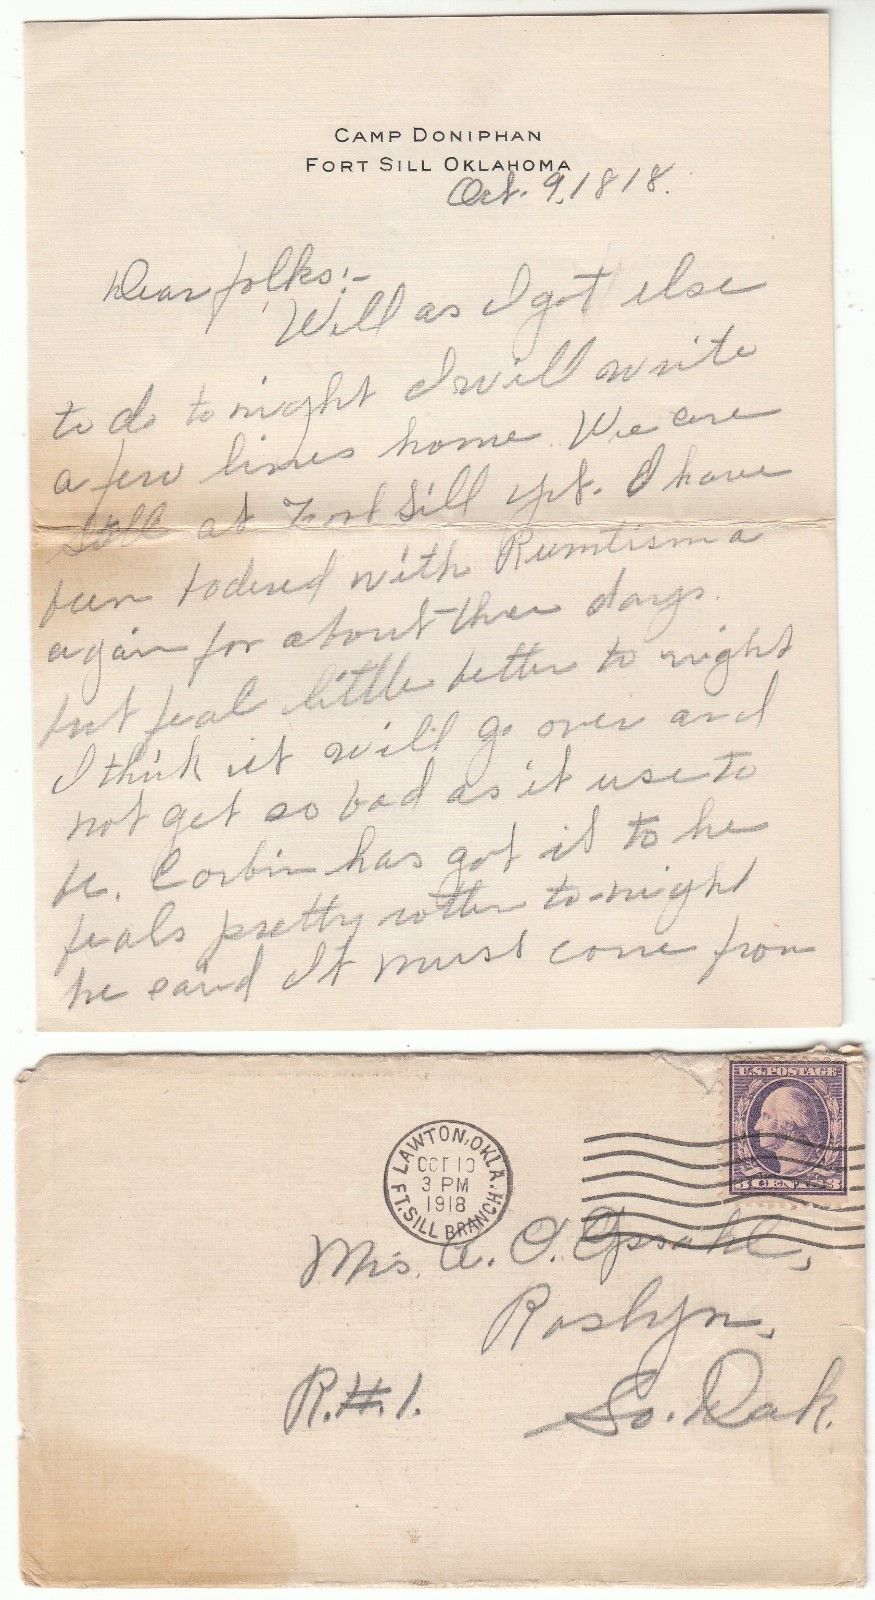 CAMP DONIPHAN
FORT SILL OKLAHOMA
Oct. 9, 1818.
Dear folks:-
Will as I got else
to do to night I will write
a few lines home. We are
still at Fort Sill yet. I have
been todered with Rumtisma
again for about three days.
but feal little better to night
I think it will go over and
not get so bad as it use to
be. Corbin has got it to he
feals pretty rotten to-night
he said It must come from
U.S. POSTAGE
3 CENTS 3
LAWTON, OKLA.
OCT 10
3 PM
1918
FT. SILL BRANCH
Mrs. A. O.
Roslyn,
R.#.1.
So. Dak.